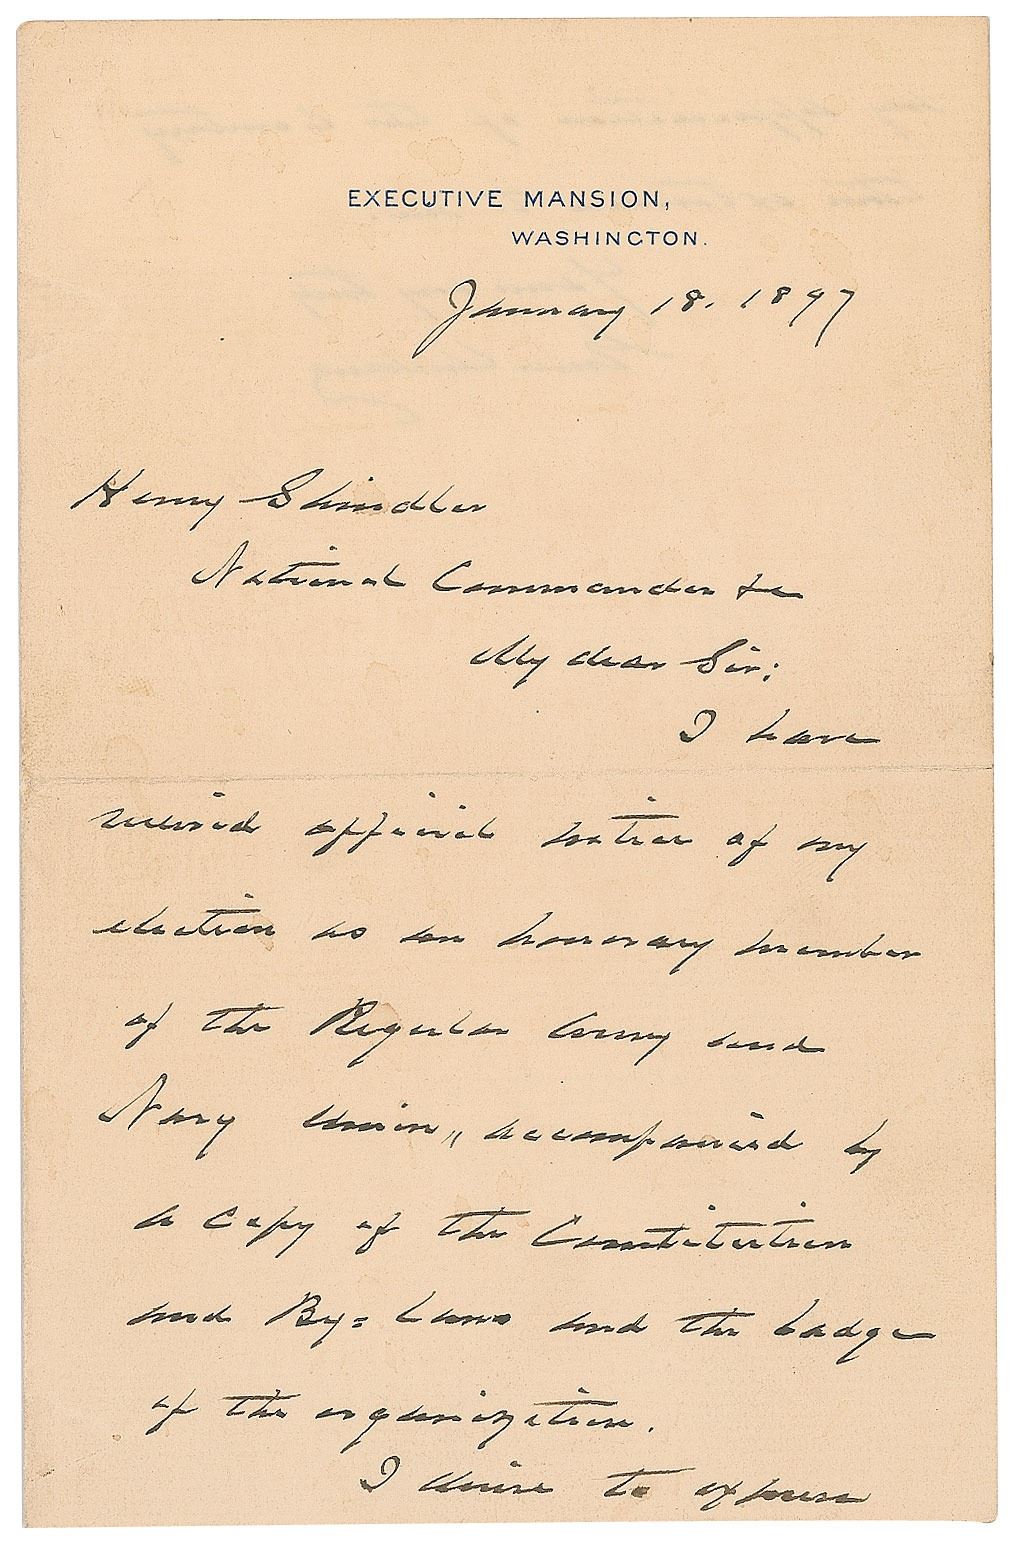 EXECUTIVE MANSION,
WASHINGTON.
January 18. 1897
Henry Shindler
National Commander &c
My dear Sir:
I have
received official notice of my
election as an honorary member
of the Regular Army and
Navy Union,, accompanied by
a copy of the Constitution
and By=Laws and the badge
of the organization.
I desire to express